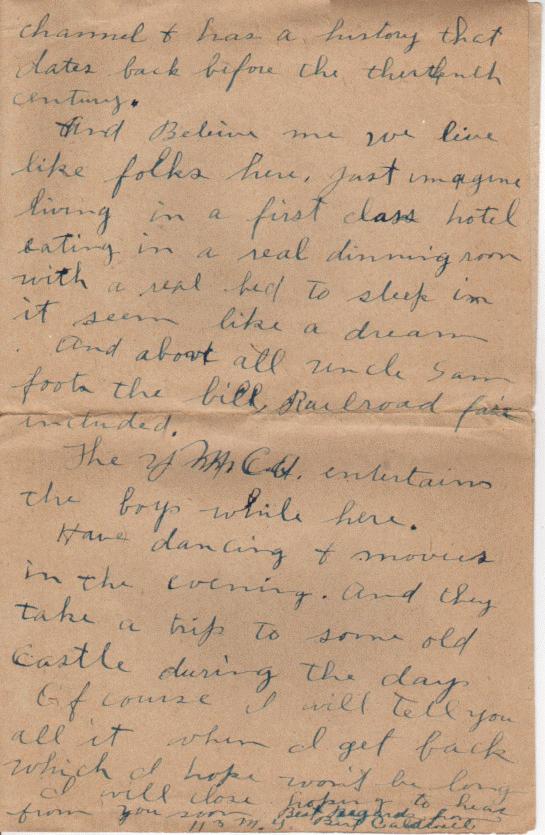 channel & has a history that
dates back before the thirteenth
century.
And Beleive me we live
like folks here. Just imagine
living in a first class hotel
eating in a real dinning room
with a real bed to sleep in
it seem like a dream
. And about all uncle Sam
foots the bill, Railroad fair
included.
The Y.M.C.A. entertains
the boys while here.
Have dancing & movies
in the evening. And they
take a trip to some old
Castle during the day
Of course I will tell you
all it when I get back
which I hope won't be long
I will close hoping to hear
from you soon Best Regards
Bert Caldwell